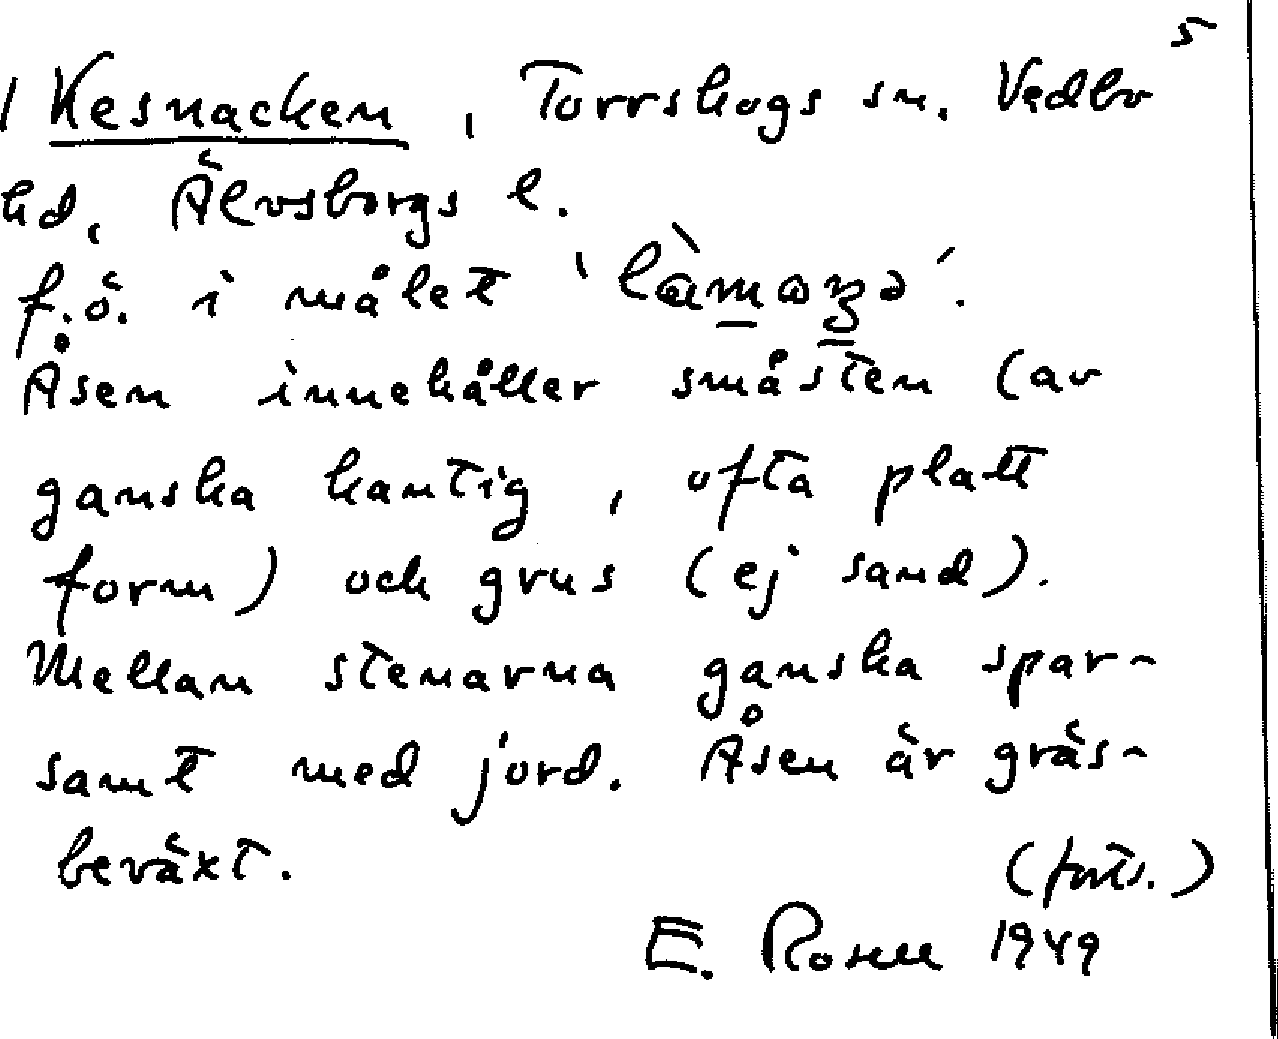 5
/ Kesnacken, Torrskogs sn. Vedbo
hd, Älvsborgs l.
f.ö. i målet
Åsen innehåller småsten (av
ganska kantig, ofta platt
form) och grus (ej sand).
Mellan stenarna ganska spar-
samt med jord. Åsen är gräs-
beväxt.
(forts.)
E. Rosell 1949